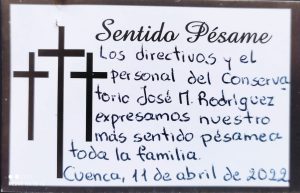 Sentido Pésame
Los directivos y el
personal del Conserva
torio José M. Rodríguez
expresamos nuestro
más sentido pésame a
toda la familia.
Cuenca, 11 de abril de 2022